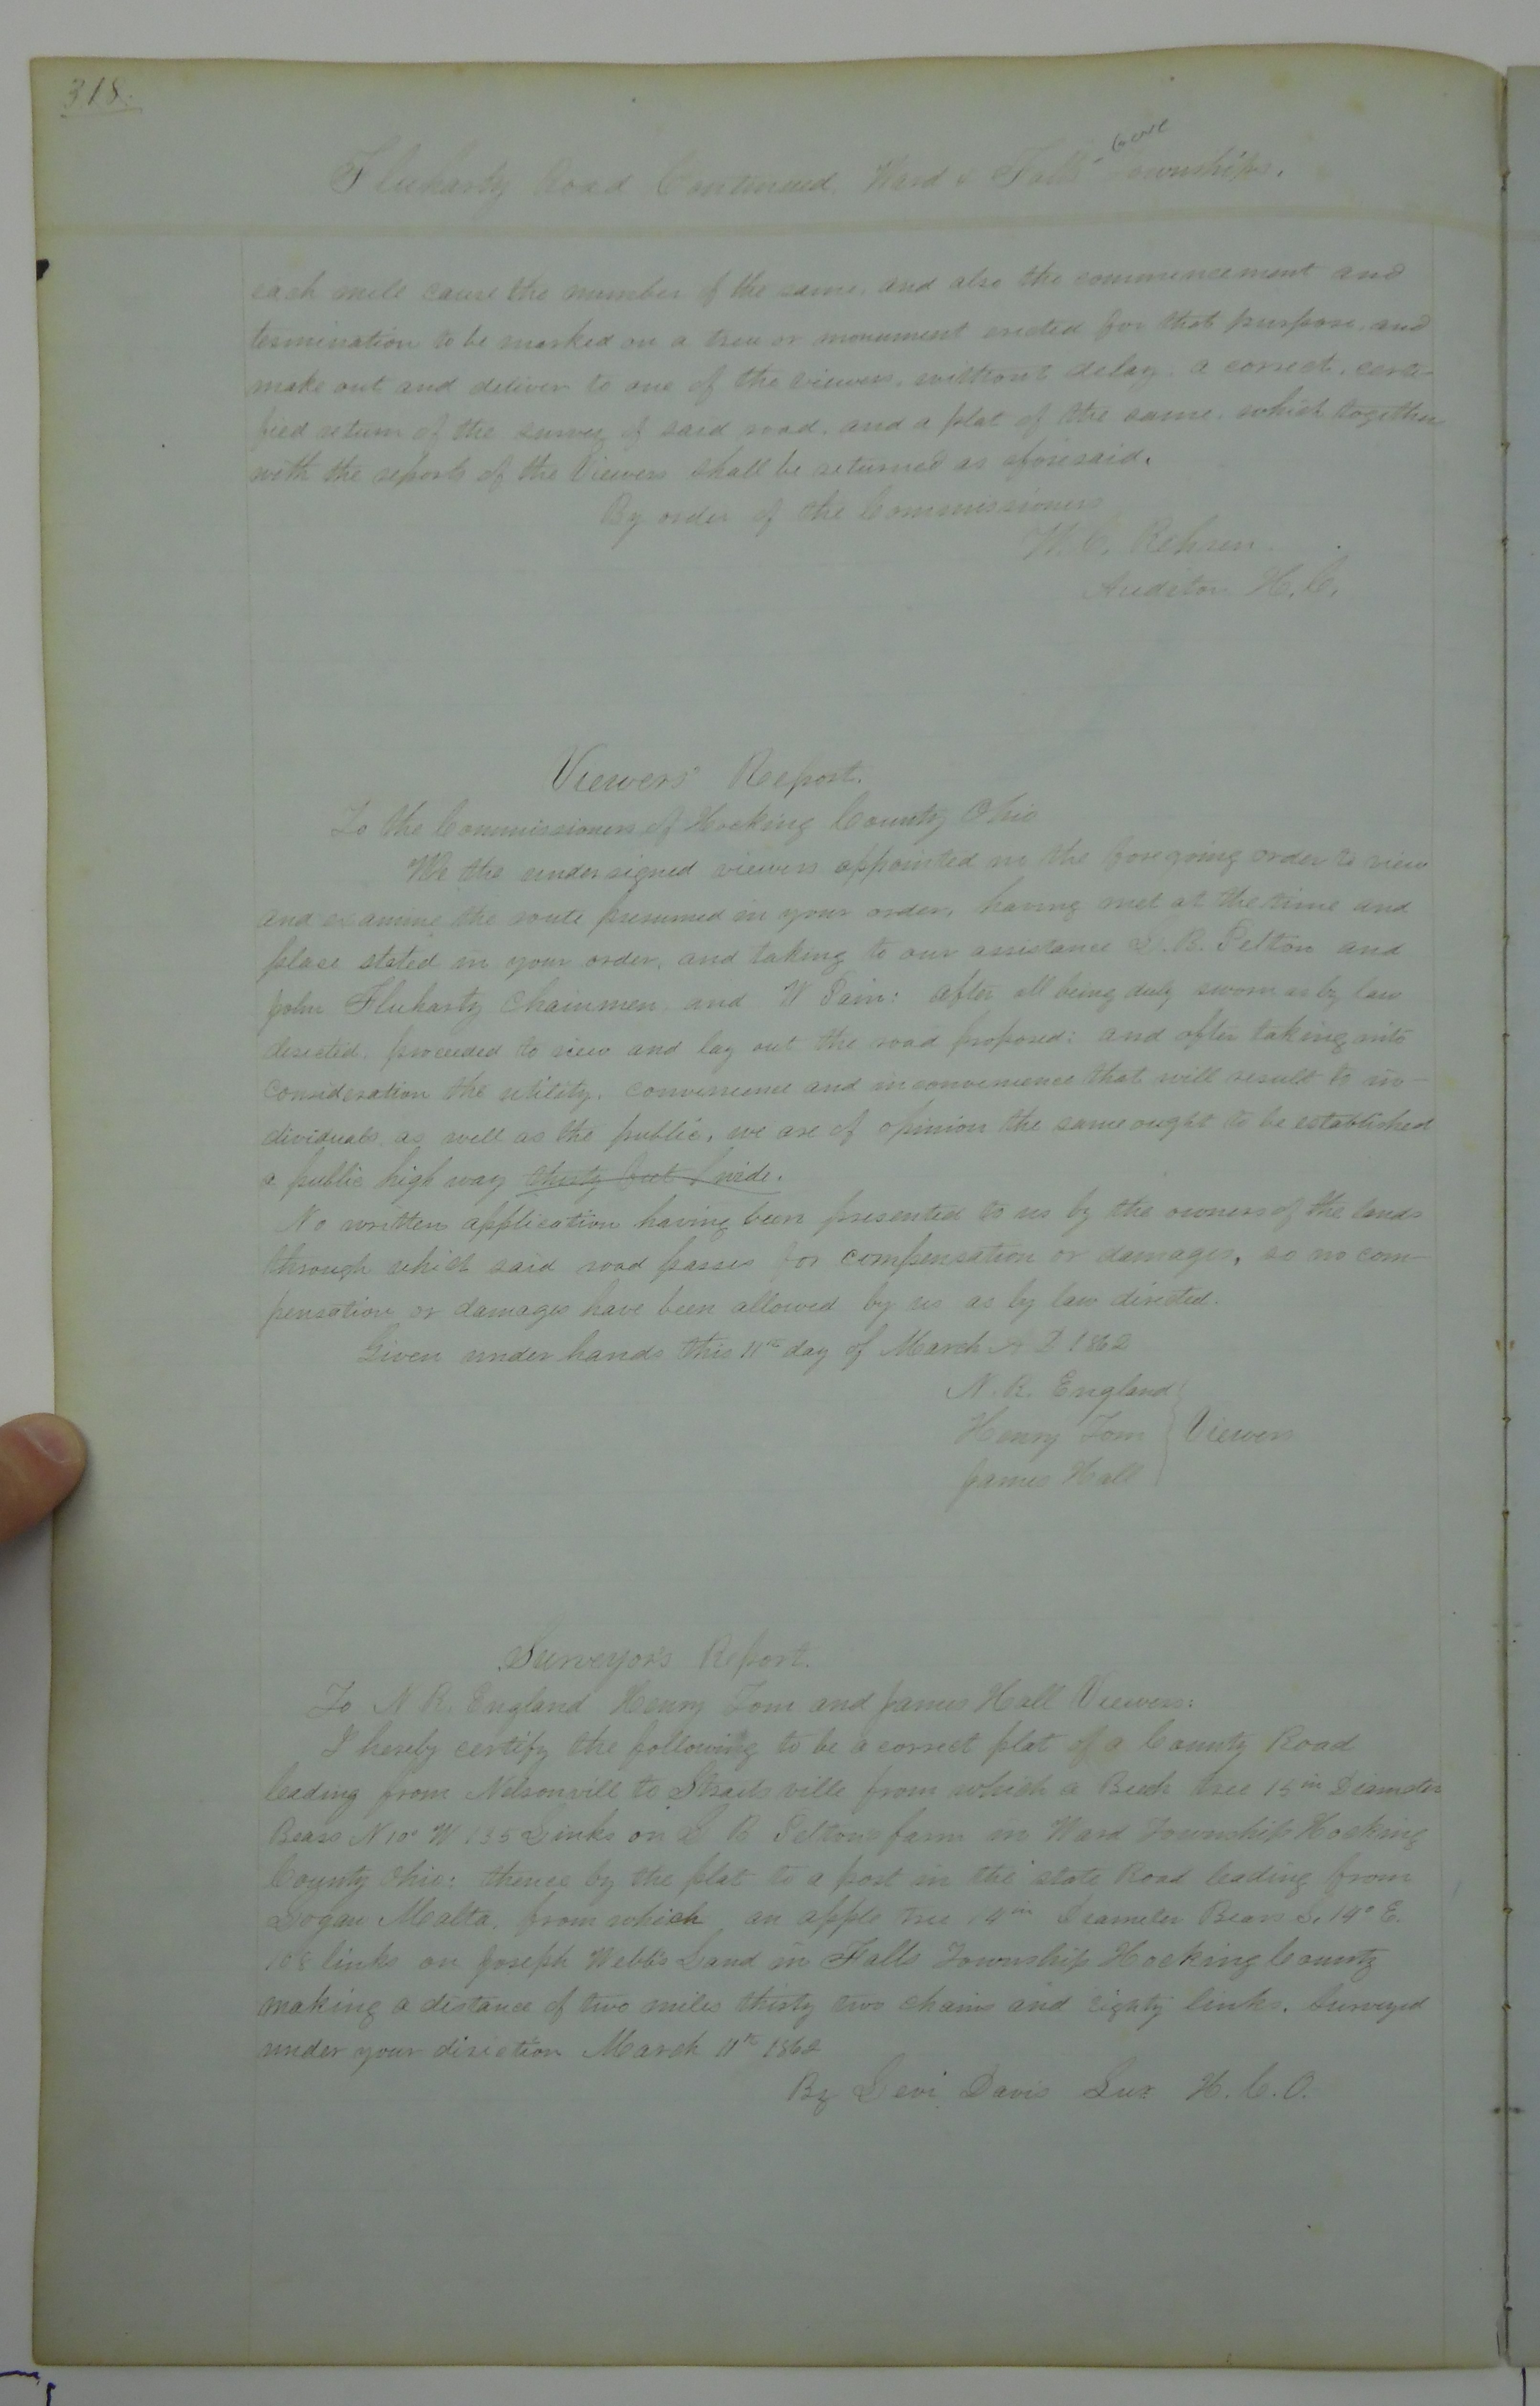 318.
Gore
Flukarty Road Continued. Ward & Falls Townships.
each mile cause the number of the same, and also the commencement and
termination to be marked on a tree or monument erected for that purpose, and
make out and deliver to one of the viewers, without delay, a correct, certi-
fied return of the survey of said road, and a plat of the same, which together
with the reports of the Viewers shall be returned as aforesaid.
By order of the Commissioners
W. C. Rehren
Auditor H. C.
Viewers' Report.
To the Commissioners of Hocking County Ohio
We the undersigned viewers appointed in the foregoing order to view
and examine the route presumed in your order, having met at the time and
place stated in your order, and taking to our assistance L. B. Pelton and
John Flukarty Chainmen and W Pain: after all being duly sworn as by law
directed, proceeded to view and lay out the road proposed; and after taking into
consideration the utility, convenience and inconvenience that will result to in-
dividuals, as well as the public, we are of opinion the same ought to be established
a public high way thirty feet wide.
No written application having been presented to us by the owners of the lands
through which said road passes for compensation or damages, so no com-
pensation or damages have been allowed by us as by law directed.
Given under hands this 11th day of March A D 1862
N. R. England
Henry Tom } Viewers
James Hall
Surveyor's Report.
To N R. England Henry Tom and James Hall Viewers:
I hereby certify the following to be a correct plat of a County Road
leading from Nelsonvill to Straitsville from which a Beech tree 15 in Diameter
Bears N 10° W 135 Links on L B Peltons farm in Ward Township Hocking
County Ohio; thence by the plat to a post in the state Road leading from
Logan Malta, from which an apple tree 14 in Diameter Bears S. 14° E.
108 links on Joseph Webb's Land in Falls Township Hocking County
making a distance of two miles thirty two chains and eighty links. Surveyed
under your direction March 11th 1862
By Levi Davis Sur H. C. O.